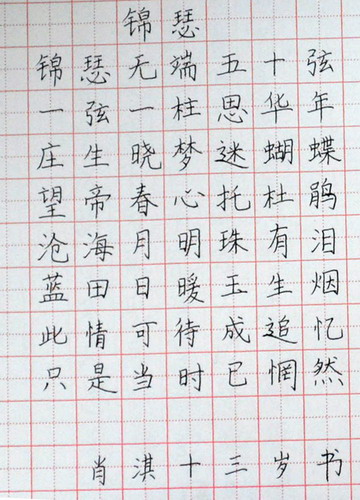 锦瑟
锦瑟无端五十弦
一弦一柱思华年
庄生晓梦迷蝴蝶
望帝春心托杜鹃
沧海月明珠有泪
蓝田日暖玉生烟
此情可待成追忆
只是当时已惘然
肖淇十三岁书